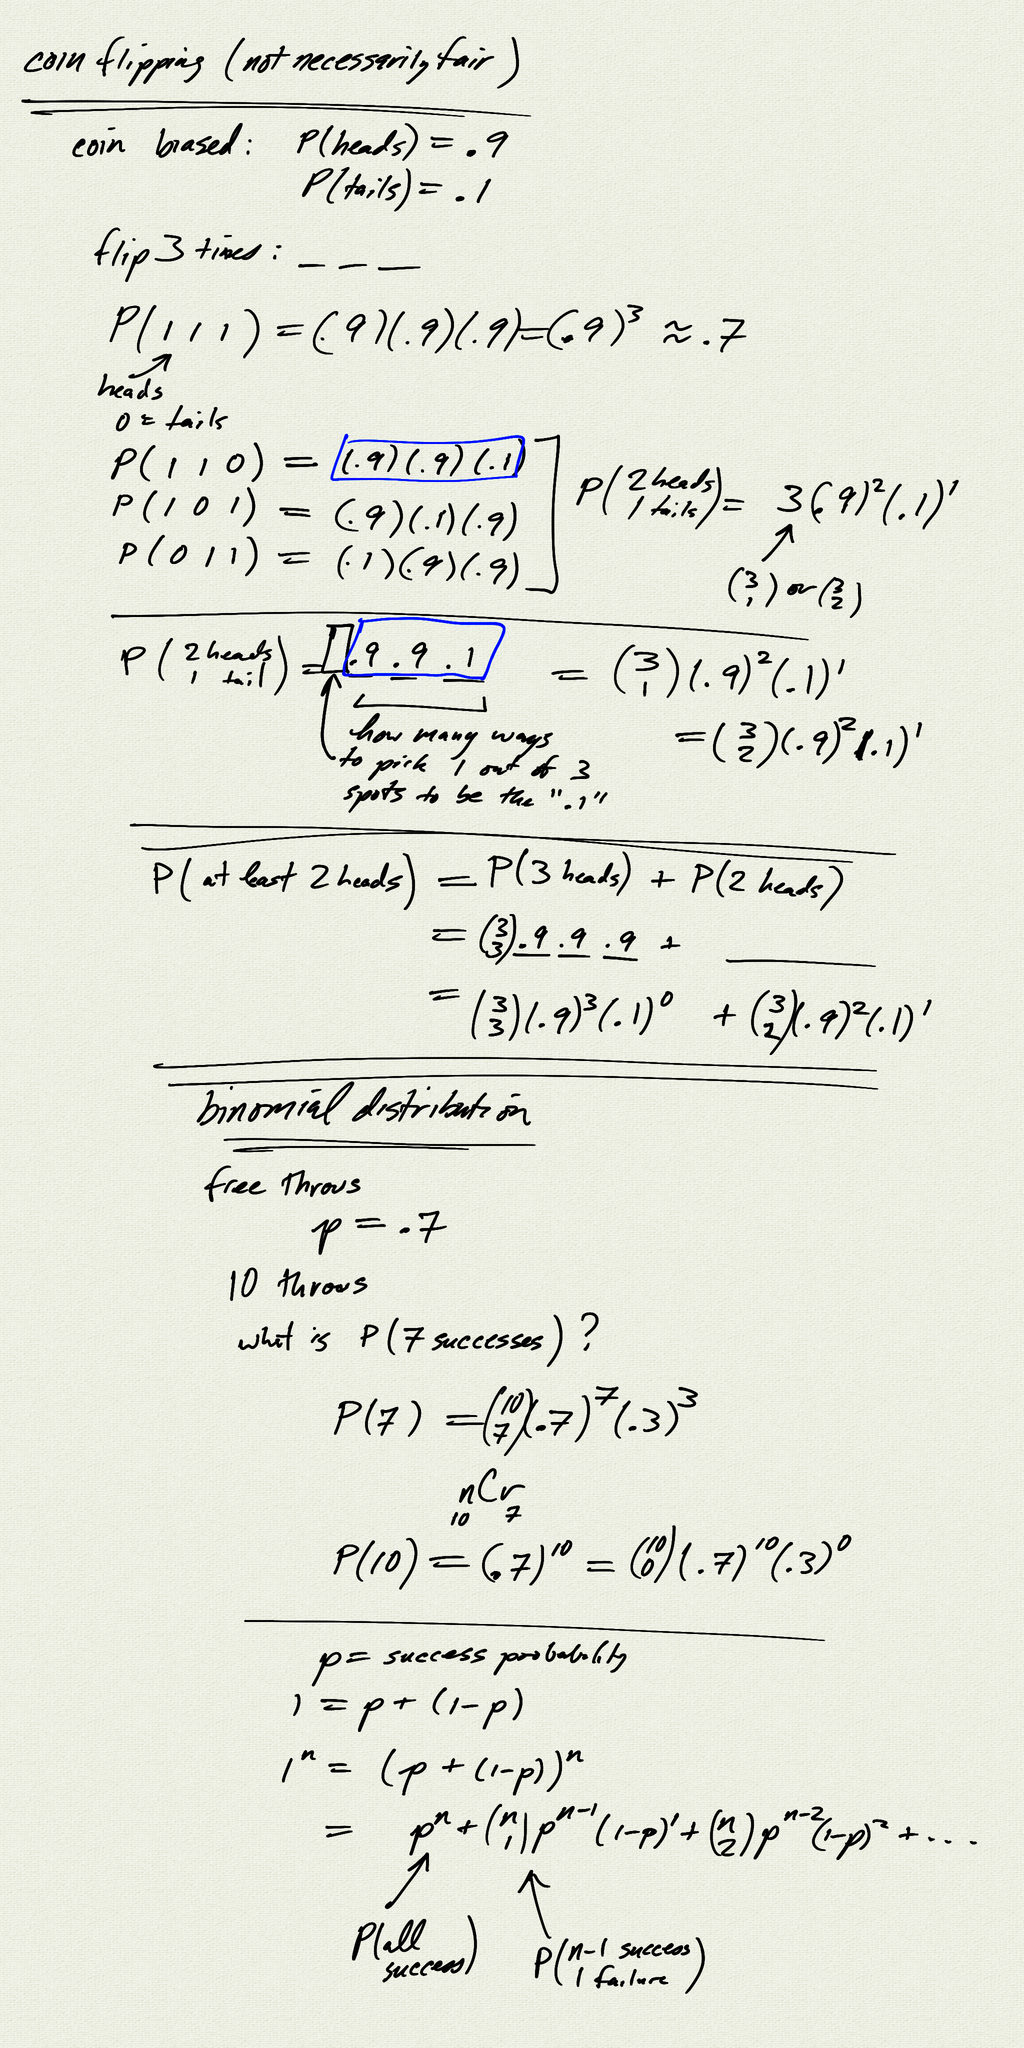 coin flipping (not necessarily fair)
coin biased: P(heads) = .9
P(tails) = .1
flip 3 times: _ _ _
P(1 1 1) = (.9)(.9)(.9) = (.9)³ ≈ .7
heads
0 = tails
P(1 1 0) = (.9)(.9)(.1)
P(1 0 1) = (.9)(.1)(.9)
P(0 1 1) = (.1)(.9)(.9)
P(2 heads 1 tails) = 3(.9)²(.1)¹
(3 1) or (3 2)
P(2 heads 1 tail) = .9 .9 .1 = (3 1)(.9)²(.1)¹
= (3 2)(.9)²(.1)¹
how many ways
to pick 1 out of 3
spots to be the ".1"
P(at least 2 heads) = P(3 heads) + P(2 heads)
= (3 3) .9 .9 .9 + ____
= (3 3)(.9)³(.1)⁰ + (3 2)(.9)²(.1)¹
binomial distribution
free throws
p = .7
10 throws
what is P(7 successes)?
P(7) = (10 7)(.7)⁷(.3)³
nCr
10 7
P(10) = (.7)¹⁰ = (10 0)(.7)¹⁰(.3)⁰
p = success probability
1 = p + (1-p)
1ⁿ = (p + (1-p))ⁿ
= pⁿ + (n 1)pⁿ⁻¹(1-p)¹ + (n 2)pⁿ⁻²(1-p)² + ...
P(all success)
P(n-1 success 1 failure)